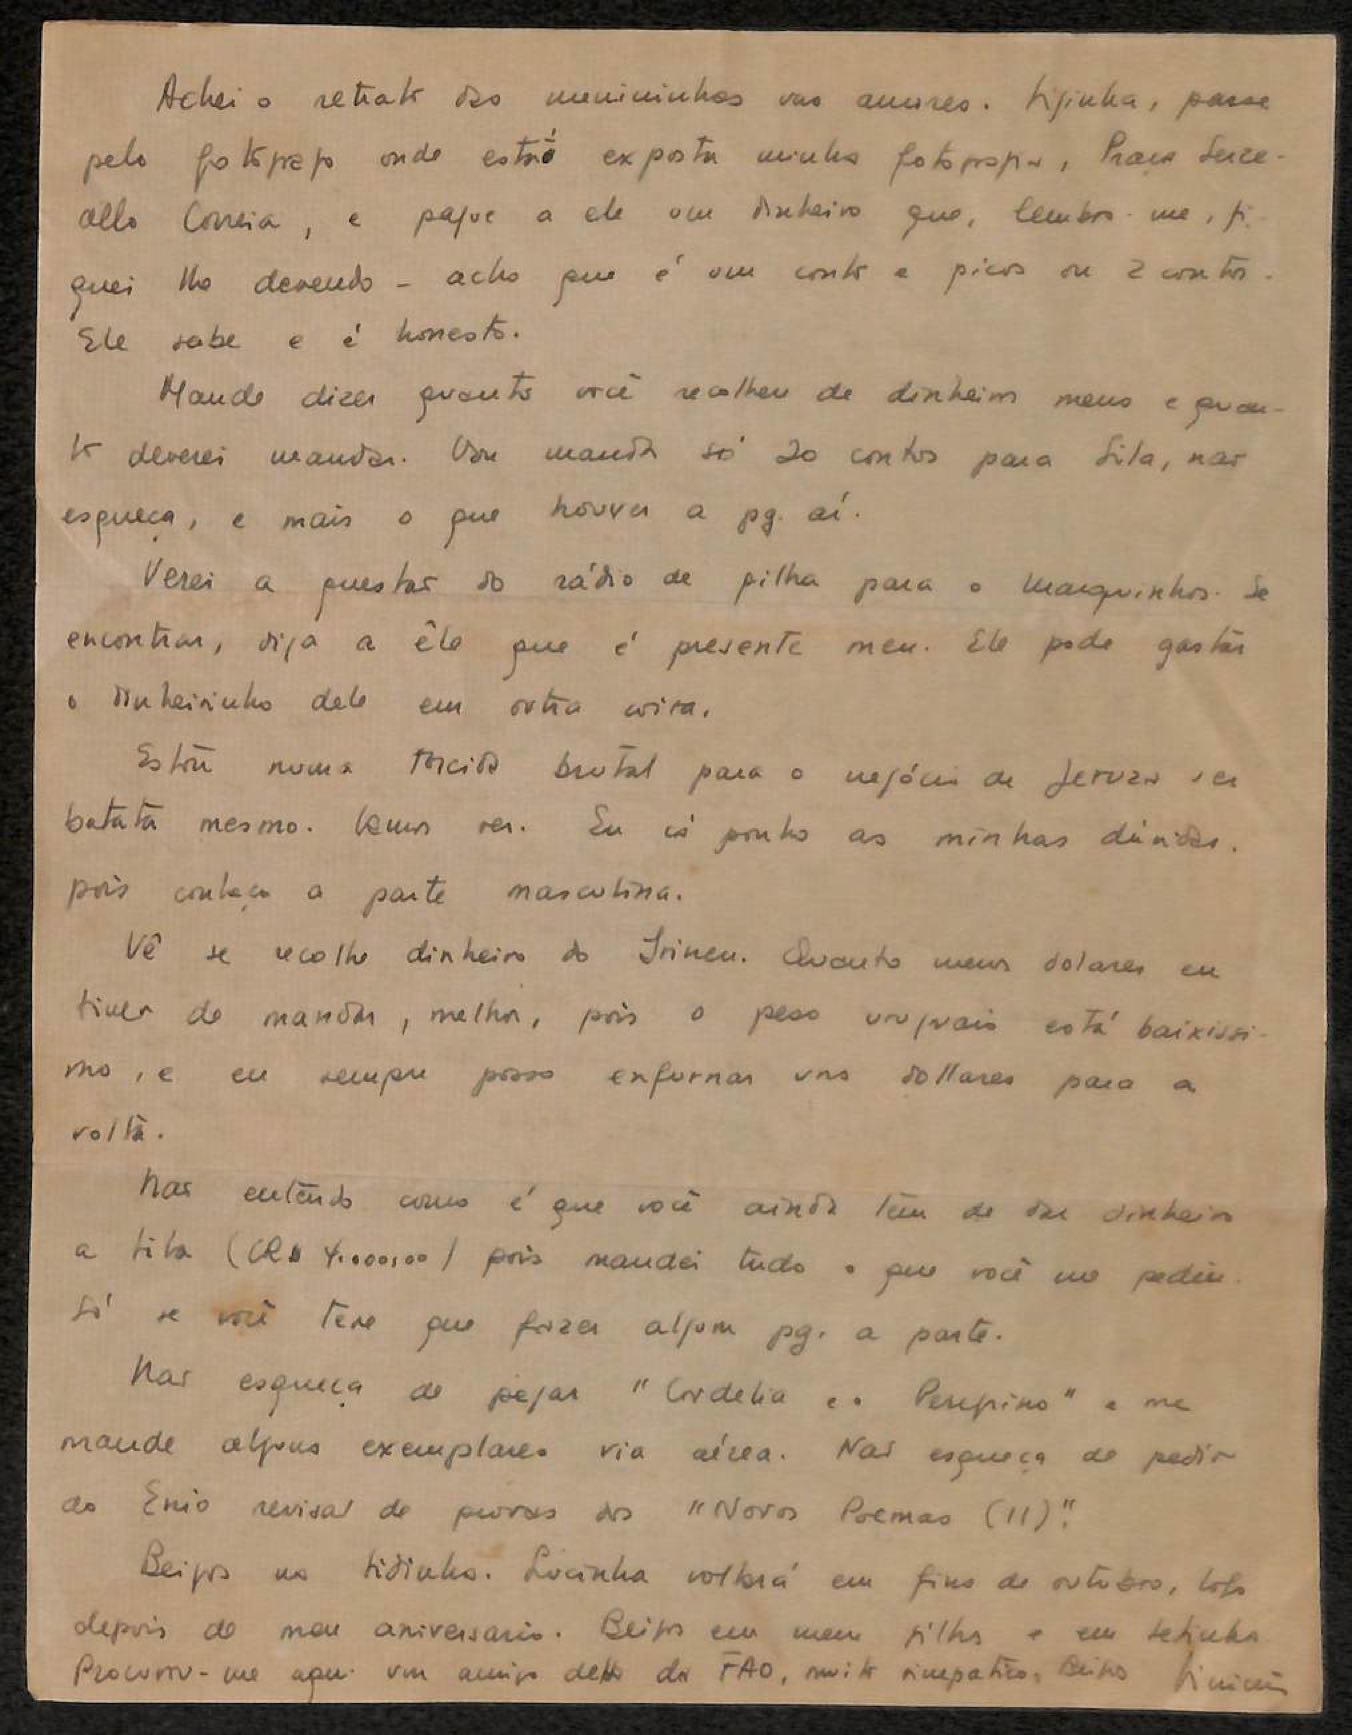 Achei o retrato das menininhas uns amores. Lijinha, passe
pelo fotógrafo onde está exposta minha fotografia, Praça Serze-
dello Correia, e pague a ele um dinheiro que, lembro-me, fi-
quei lhe devendo - acho que é um conto e picos ou 2 contos.
Ele sabe e é honesto.
Mande dizer quanto você recolheu de dinheiro meu e quan-
to deverei mandar. Vou mandar só 20 contos para Lila, não
esqueça, e mais o que houver a pg. aí.
Verei a questão do rádio de pilha para o Marquinhos. Se
encontrar, diga a êle que é presente meu. Ele pode gastar
o dinheirinho dele em outra coisa.
Estou numa torcida brutal para o negócio de Jeruza ser
batata mesmo. Vamos ver. Eu cá ponho as minhas dúvidas,
pois conheço a parte masculina.
Vê se recolhe dinheiro do Irineu. Quanto menos dolares eu
tiver de mandar, melhor, pois o peso uruguaio está baixissi-
mo, e eu sempre posso enfurnar uns dollares para a
volta.
Não entendo como é que você ainda têm de dar dinheiro
a Lila (CR$ 4.000,00) pois mandei tudo o que você me pediu.
Só se você teve que fazer algum pg. a parte.
Não esqueça de pegar "Cordelia e o Peregrino" e me
mande alguns exemplares via aérea. Não esqueça de pedir
ao Enio revisão de provas dos "Novos Poemas (II)".
Beijos na Lidinha. Lucinha voltará em fins de outubro, logo
depois de meu aniversario. Beijos em meu filho e em
Procurou-me aqui um amigo da FAO, muito simpatico. Beijos